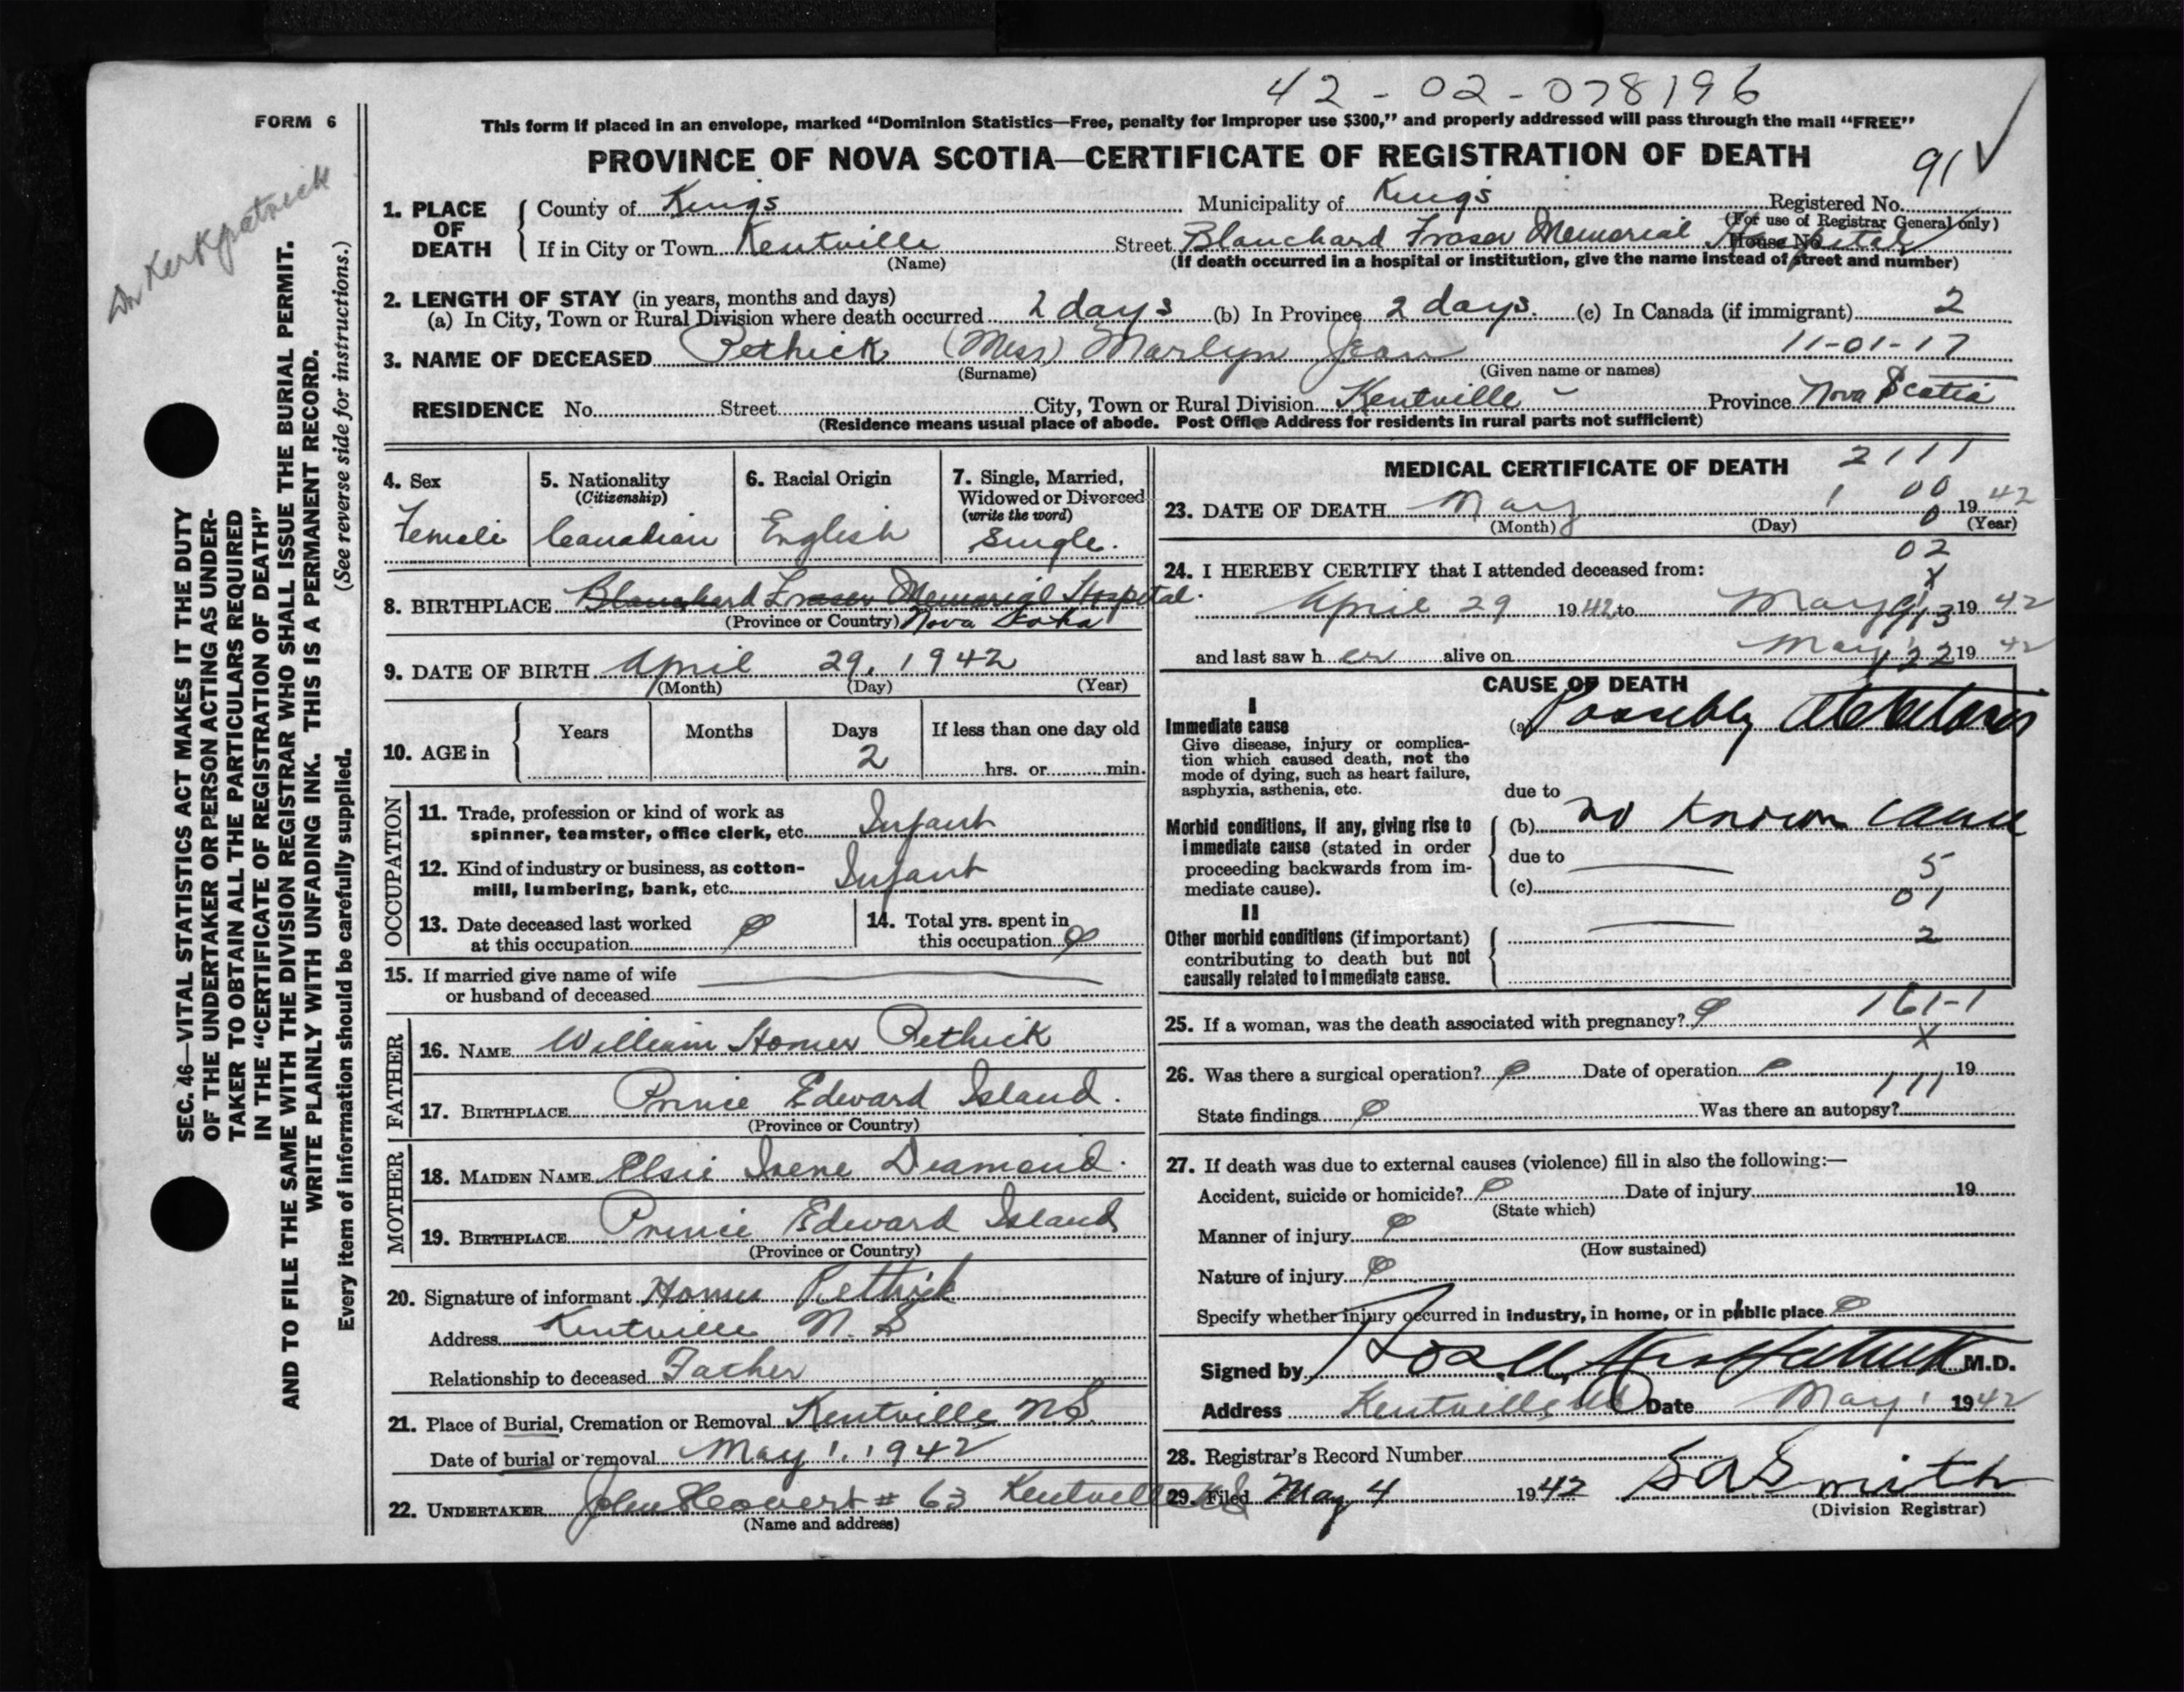 42-02-078196
FORM 6
This form if placed in an envelope, marked "Dominion Statistics—Free, penalty for improper use $300," and properly addressed will pass through the mail "FREE"
PROVINCE OF NOVA SCOTIA—CERTIFICATE OF REGISTRATION OF DEATH
91
Dr Kirkpatrick
SEC. 46—VITAL STATISTICS ACT MAKES IT THE DUTY
OF THE UNDERTAKER OR PERSON ACTING AS UNDER-
TAKER TO OBTAIN ALL THE PARTICULARS REQUIRED
IN THE "CERTIFICATE OF REGISTRATION OF DEATH"
AND TO FILE THE SAME WITH THE DIVISION REGISTRAR WHO SHALL ISSUE THE BURIAL PERMIT.
WRITE PLAINLY WITH UNFADING INK. THIS IS A PERMANENT RECORD.
Every item of information should be carefully supplied. (See reverse side for instructions.)
1. PLACE OF DEATH County of Kings Municipality of Kings Registered No.
(For use of Registrar General only)
If in City or Town Kentville Street Blanchard Fraser Memorial Hospital House No
(Name) (If death occurred in a hospital or institution, give the name instead of street and number)
2. LENGTH OF STAY (in years, months and days)
(a) In City, Town or Rural Division where death occurred 2 days (b) In Province 2 days. (c) In Canada (if immigrant) 2
3. NAME OF DECEASED Pethick (Miss) Marlyn Jean 11-01-17
(Surname) (Given name or names)
RESIDENCE No. Street City, Town or Rural Division Kentville Province Nova Scotia
(Residence means usual place of abode. Post Office Address for residents in rural parts not sufficient)
4. Sex
Female
5. Nationality
(Citizenship)
Canadian
6. Racial Origin
English
7. Single, Married,
Widowed or Divorced
(write the word)
Single.
8. BIRTHPLACE Blanchard Fraser Memorial Hospital.
(Province or Country) Nova Scotia
9. DATE OF BIRTH April 29, 1942
(Month) (Day) (Year)
10. AGE in Years Months Days If less than one day old
2 hrs. or min.
OCCUPATION
11. Trade, profession or kind of work as
spinner, teamster, office clerk, etc. Infant
12. Kind of industry or business, as cotton-
mill, lumbering, bank, etc. Infant
13. Date deceased last worked
at this occupation
14. Total yrs. spent in
this occupation
15. If married give name of wife
or husband of deceased
FATHER
16. NAME William Homer Pethick
17. BIRTHPLACE Prince Edward Island.
(Province or Country)
MOTHER
18. MAIDEN NAME Elsie Irene Diamond.
19. BIRTHPLACE Prince Edward Island
(Province or Country)
20. Signature of informant Homer Pethick
Address Kentville N.S
Relationship to deceased Father
21. Place of Burial, Cremation or Removal Kentville N.S.
Date of burial or removal May 1, 1942
22. UNDERTAKER # 63 Kentville NS
(Name and address)
MEDICAL CERTIFICATE OF DEATH 2111
00
23. DATE OF DEATH May 1 1942
(Month) (Day) (Year)
0
02
24. I HEREBY CERTIFY that I attended deceased from:
X
April 29 1942 to May 1942
and last saw her alive on May 1 1942
CAUSE OF DEATH
I
Immediate cause
Give disease, injury or complica-
tion which caused death, not the
mode of dying, such as heart failure,
asphyxia, asthenia, etc.
(a) Possibly Atelectasis
due to
Morbid conditions, if any, giving rise to
immediate cause (stated in order
proceeding backwards from im-
mediate cause).
(b) no known cause
due to
(c) 5
01
II
Other morbid conditions (if important)
contributing to death but not
causally related to immediate cause.
2
161-1
25. If a woman, was the death associated with pregnancy?
X
26. Was there a surgical operation? Date of operation 19
111
State findings Was there an autopsy?
27. If death was due to external causes (violence) fill in also the following:—
Accident, suicide or homicide? Date of injury 19
(State which)
Manner of injury
(How sustained)
Nature of injury
Specify whether injury occurred in industry, in home, or in public place
Signed by Kirkpatrick M.D.
Address Kentville, NS Date May 1 1942
28. Registrar's Record Number
29. Filed May 4 1942 S A Smith
(Division Registrar)